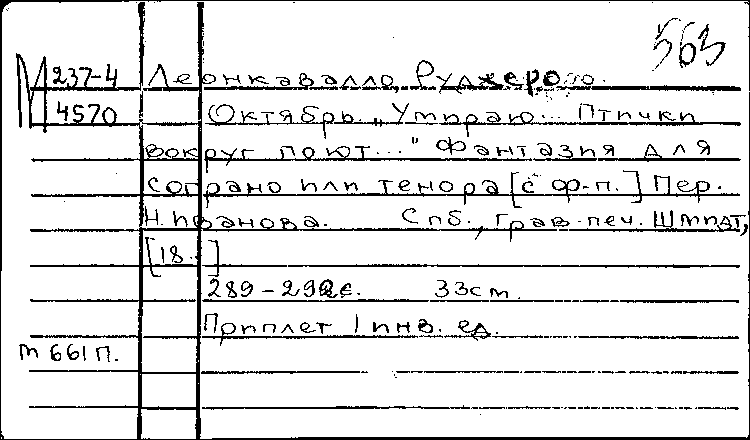 563
М 237-4 Леонкавалло, Руджеро.
4570 Октябрь. „Умираю... Птички
вокруг поют...” Фантазия для
сопрано или тенора [с ф-п.] Пер.
Н. Иванова. Спб., грав.-печ. Шмидт,
[18..]
289-292с. 33см.
Приплет 1 инв. ед.
т 661 п.